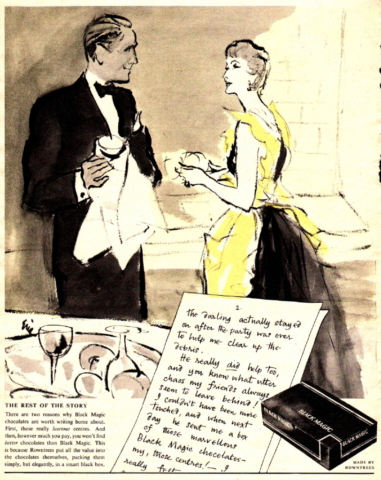 2.
The darling actually stayed
on after the party was over
to help me clear up the
debris.
He really did help too,
and you know what utter
chaos my friends always
seem to leave behind!
I couldn't have been more
touched, and when next
day he sent me a box
of those marvellous
Black Magic chocolates—
my, those centres! — I
really
THE REST OF THE STORY
There are two reasons why Black Magic
chocolates are worth writing home about.
First, those really luscious centres. And
then, however much you pay, you won't find
better chocolates than Black Magic. This
is because Rowntrees put all the value into
the chocolates themselves, packing them
simply, but elegantly, in a smart black box.
BLACK MAGIC
BLACK MAGIC
MADE BY
ROWNTREES